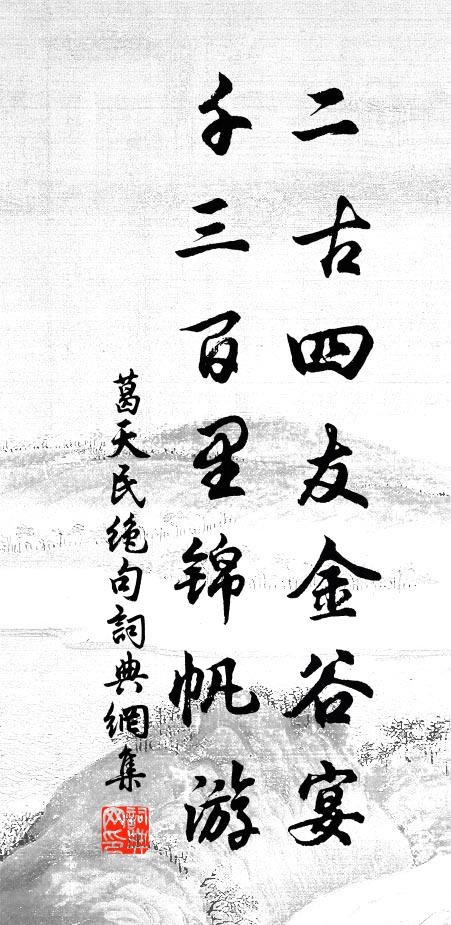 二古四友金谷宴
千三百里锦帆游
葛天民绝句詞典網集